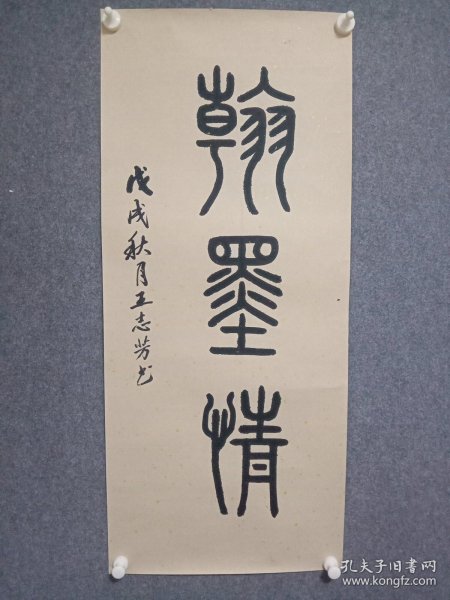 翰墨情
戊戌秋月王志芳书
孔夫子旧书网
www.kongfz.com